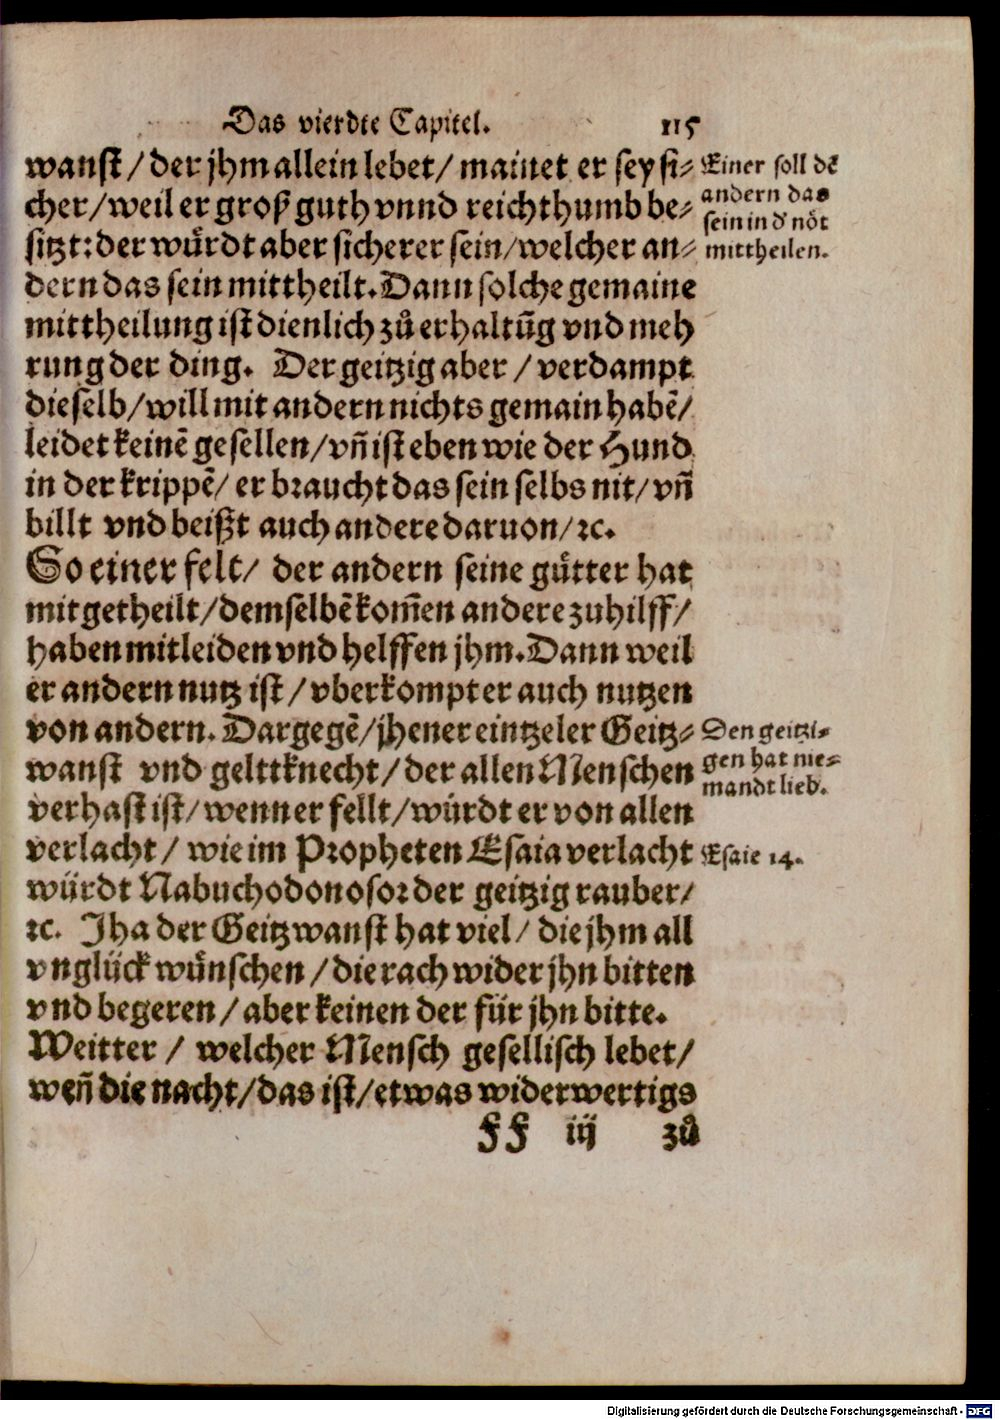 Das vierdte Capitel. 115
wanst / der jhm allein lebet / mainet er sey si-
cher / weil er groß guth vnnd reichthumb be-
sitzt: der wuͤrdt aber sicherer sein / welcher an-
dern das sein mittheilt. Dann solche gemaine
mittheilung ist dienlich zuͦ erhaltūg vnd meh
rung der ding. Der geitzig aber / verdampt
dieselb / will mit andern nichts gemain habē /
leidet keinē gesellen / vñ ist eben wie der Hund
in der krippē / er braucht das sein selbs nit / vñ
billt vnd beißt auch andere daruon / ꝛc.
So einer felt / der andern seine guͤtter hat
mitgetheilt / demselbē kom̄en andere zuhilff /
haben mitleiden vnd helffen jhm. Dann weil
er andern nutz ist / vberkompt er auch nutzen
von andern. Dargegē / jhener eintzeler Geitz-
wanst vnd gelttknecht / der allen Menschen
verhast ist / wenn er fellt / würdt er von allen
verlacht / wie im Propheten Esaia verlacht
würdt Nabuchodonosor der geitzig rauber /
ꝛc. Jha der Geitzwanst hat viel / die jhm all
vnglück wuͤnschen / die rach wider jhn bitten
vnd begeren / aber keinen der für jhn bitte.
Weitter / welcher Mensch gesellisch lebet /
weñ die nacht / das ist / etwas widerwertigs
FF iij zuͦ
Einer soll dē
andern das
sein in d' nöt
mittheilen.
Den geitzi-
gen hat nie-
mandt lieb.
Esaie 14.
Digitalisierung gefördert durch die Deutsche Forschungsgemeinschaft - DFG